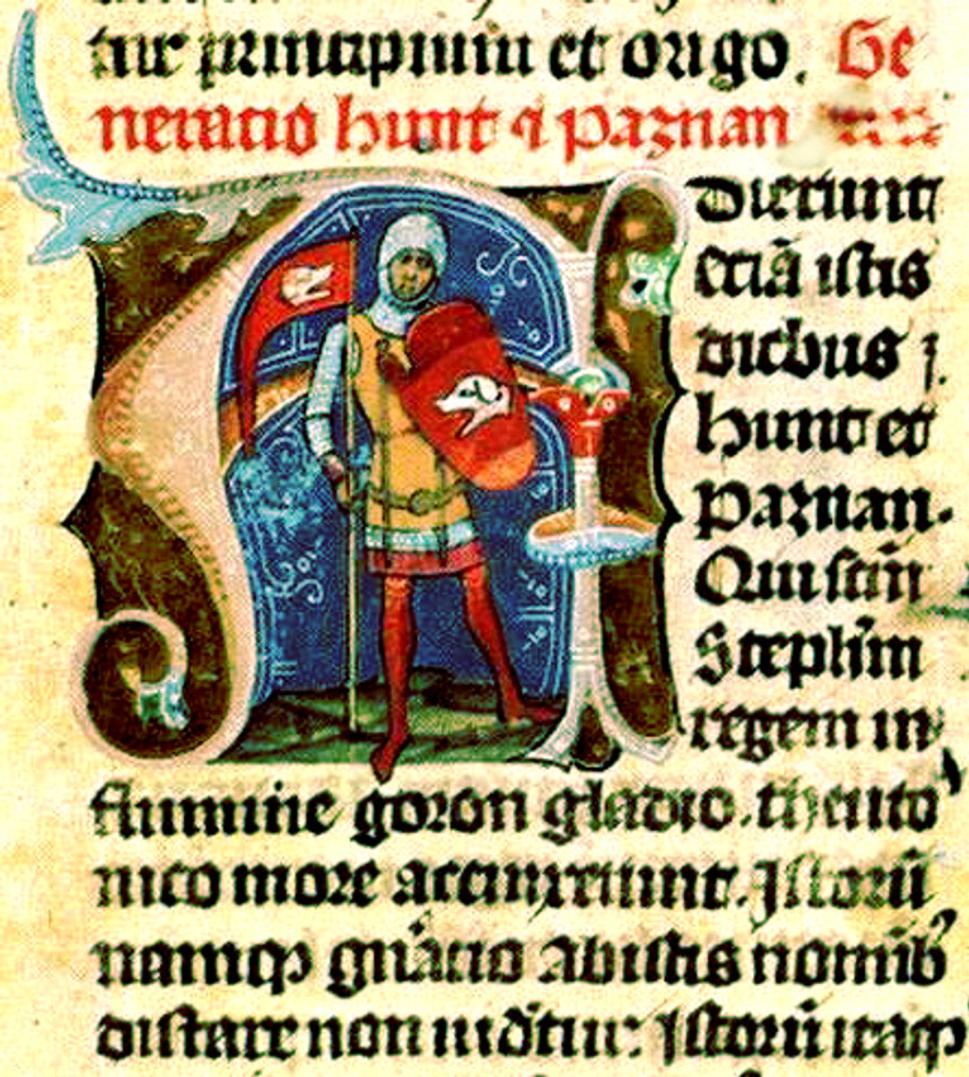 tur principium et origo. Ge
neracio hunt ⁊ paznan
Adierunt
eciā istis
diebus
hunt et
paznan.
Qui scm̄
Steph̄m
regem in
flumine goron gladio. theuto
nico more accinxerunt. Istorū
namqꝫ gn̄acio ab istis nomīb
distare non uid̄tur: Istorū itaqꝫ